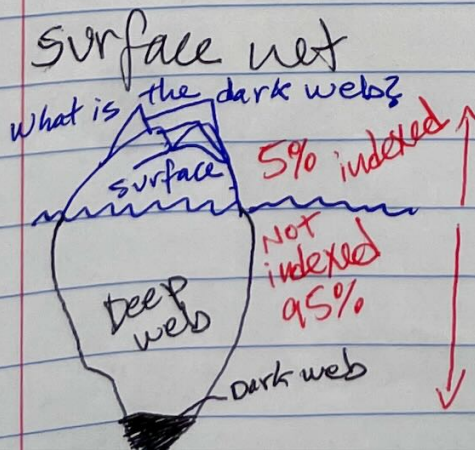 surface net
What is the dark webs?
surface
5% indexed
Not
indexed
95%
Deep
web
Dark web